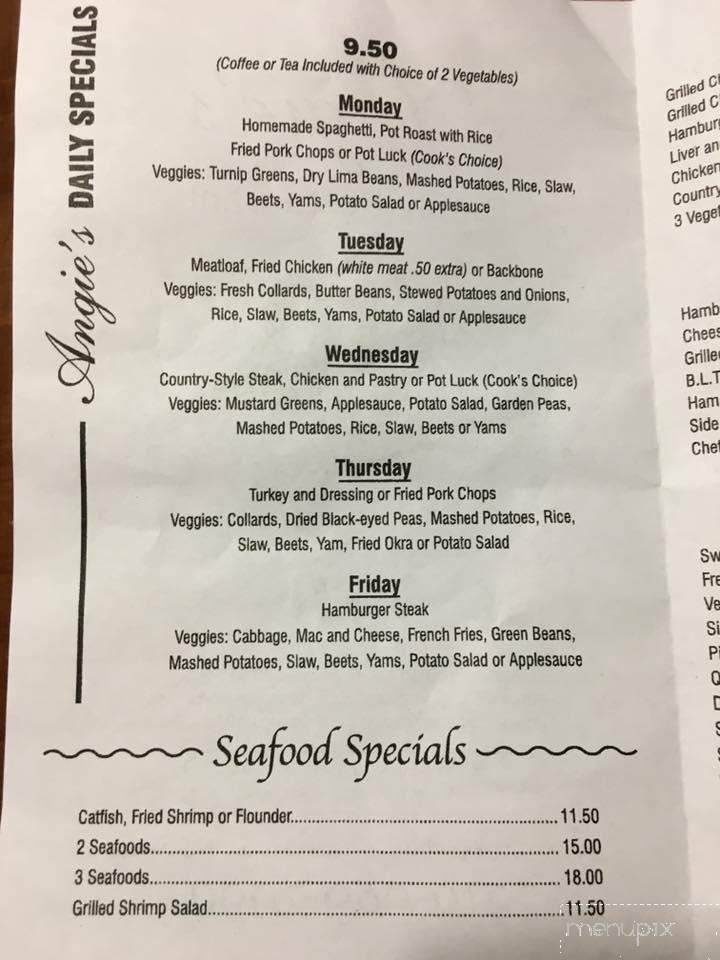 Angie's DAILY SPECIALS
9.50
(Coffee or Tea Included with Choice of 2 Vegetables)
Monday
Homemade Spaghetti, Pot Roast with Rice
Fried Pork Chops or Pot Luck (Cook's Choice)
Veggies: Turnip Greens, Dry Lima Beans, Mashed Potatoes, Rice, Slaw,
Beets, Yams, Potato Salad or Applesauce
Tuesday
Meatloaf, Fried Chicken (white meat .50 extra) or Backbone
Veggies: Fresh Collards, Butter Beans, Stewed Potatoes and Onions,
Rice, Slaw, Beets, Yams, Potato Salad or Applesauce
Wednesday
Country-Style Steak, Chicken and Pastry or Pot Luck (Cook's Choice)
Veggies: Mustard Greens, Applesauce, Potato Salad, Garden Peas,
Mashed Potatoes, Rice, Slaw, Beets or Yams
Thursday
Turkey and Dressing or Fried Pork Chops
Veggies: Collards, Dried Black-eyed Peas, Mashed Potatoes, Rice,
Slaw, Beets, Yam, Fried Okra or Potato Salad
Friday
Hamburger Steak
Veggies: Cabbage, Mac and Cheese, French Fries, Green Beans,
Mashed Potatoes, Slaw, Beets, Yams, Potato Salad or Applesauce
Seafood Specials
Catfish, Fried Shrimp or Flounder 11.50
2 Seafoods 15.00
3 Seafoods 18.00
Grilled Shrimp Salad 11.50
Grilled C
Grilled C
Hamburg
Liver an
Chicken
Country
3 Veget
Hamb
Chees
Grille
B.L.T
Ham
Side
Chef
Sw
Fre
Ve
Si
menupix